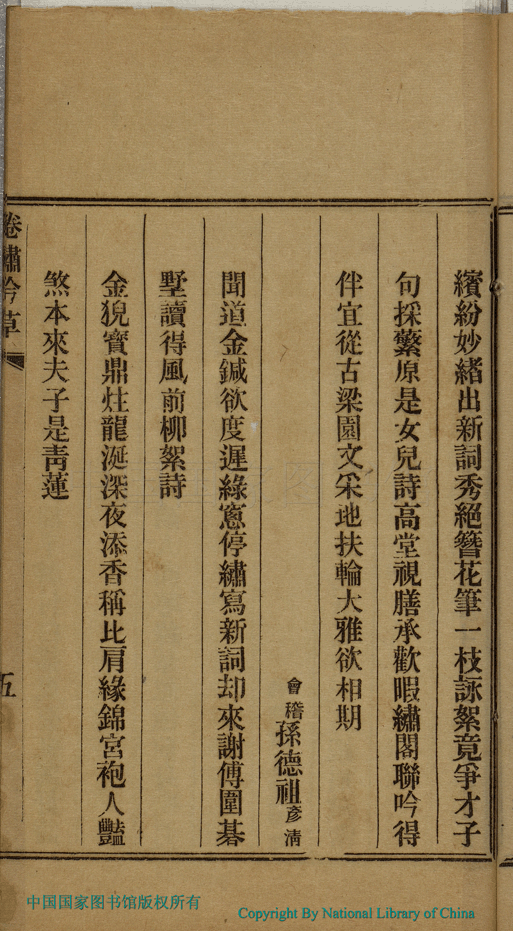 繽紛妙緒出新詞秀絕簪花筆一枝詠絮竟爭才子
句採蘩原是女兒詩高堂視膳承歡暇繡閣聯吟得
伴宜從古梁園文采地扶輪大雅欲相期
會稽孫德祖彥清
聞道金鍼欲度遲綠窻停繡寫新詞却來謝傅圍碁
墅讀得風前柳絮詩
金猊寶鼎炷龍涎深夜添香稱比肩緣錦宮袍人豔
煞本來夫子是靑蓮
卷繡吟草
五
中国国家图书馆版权所有
Copyright By National Library of China